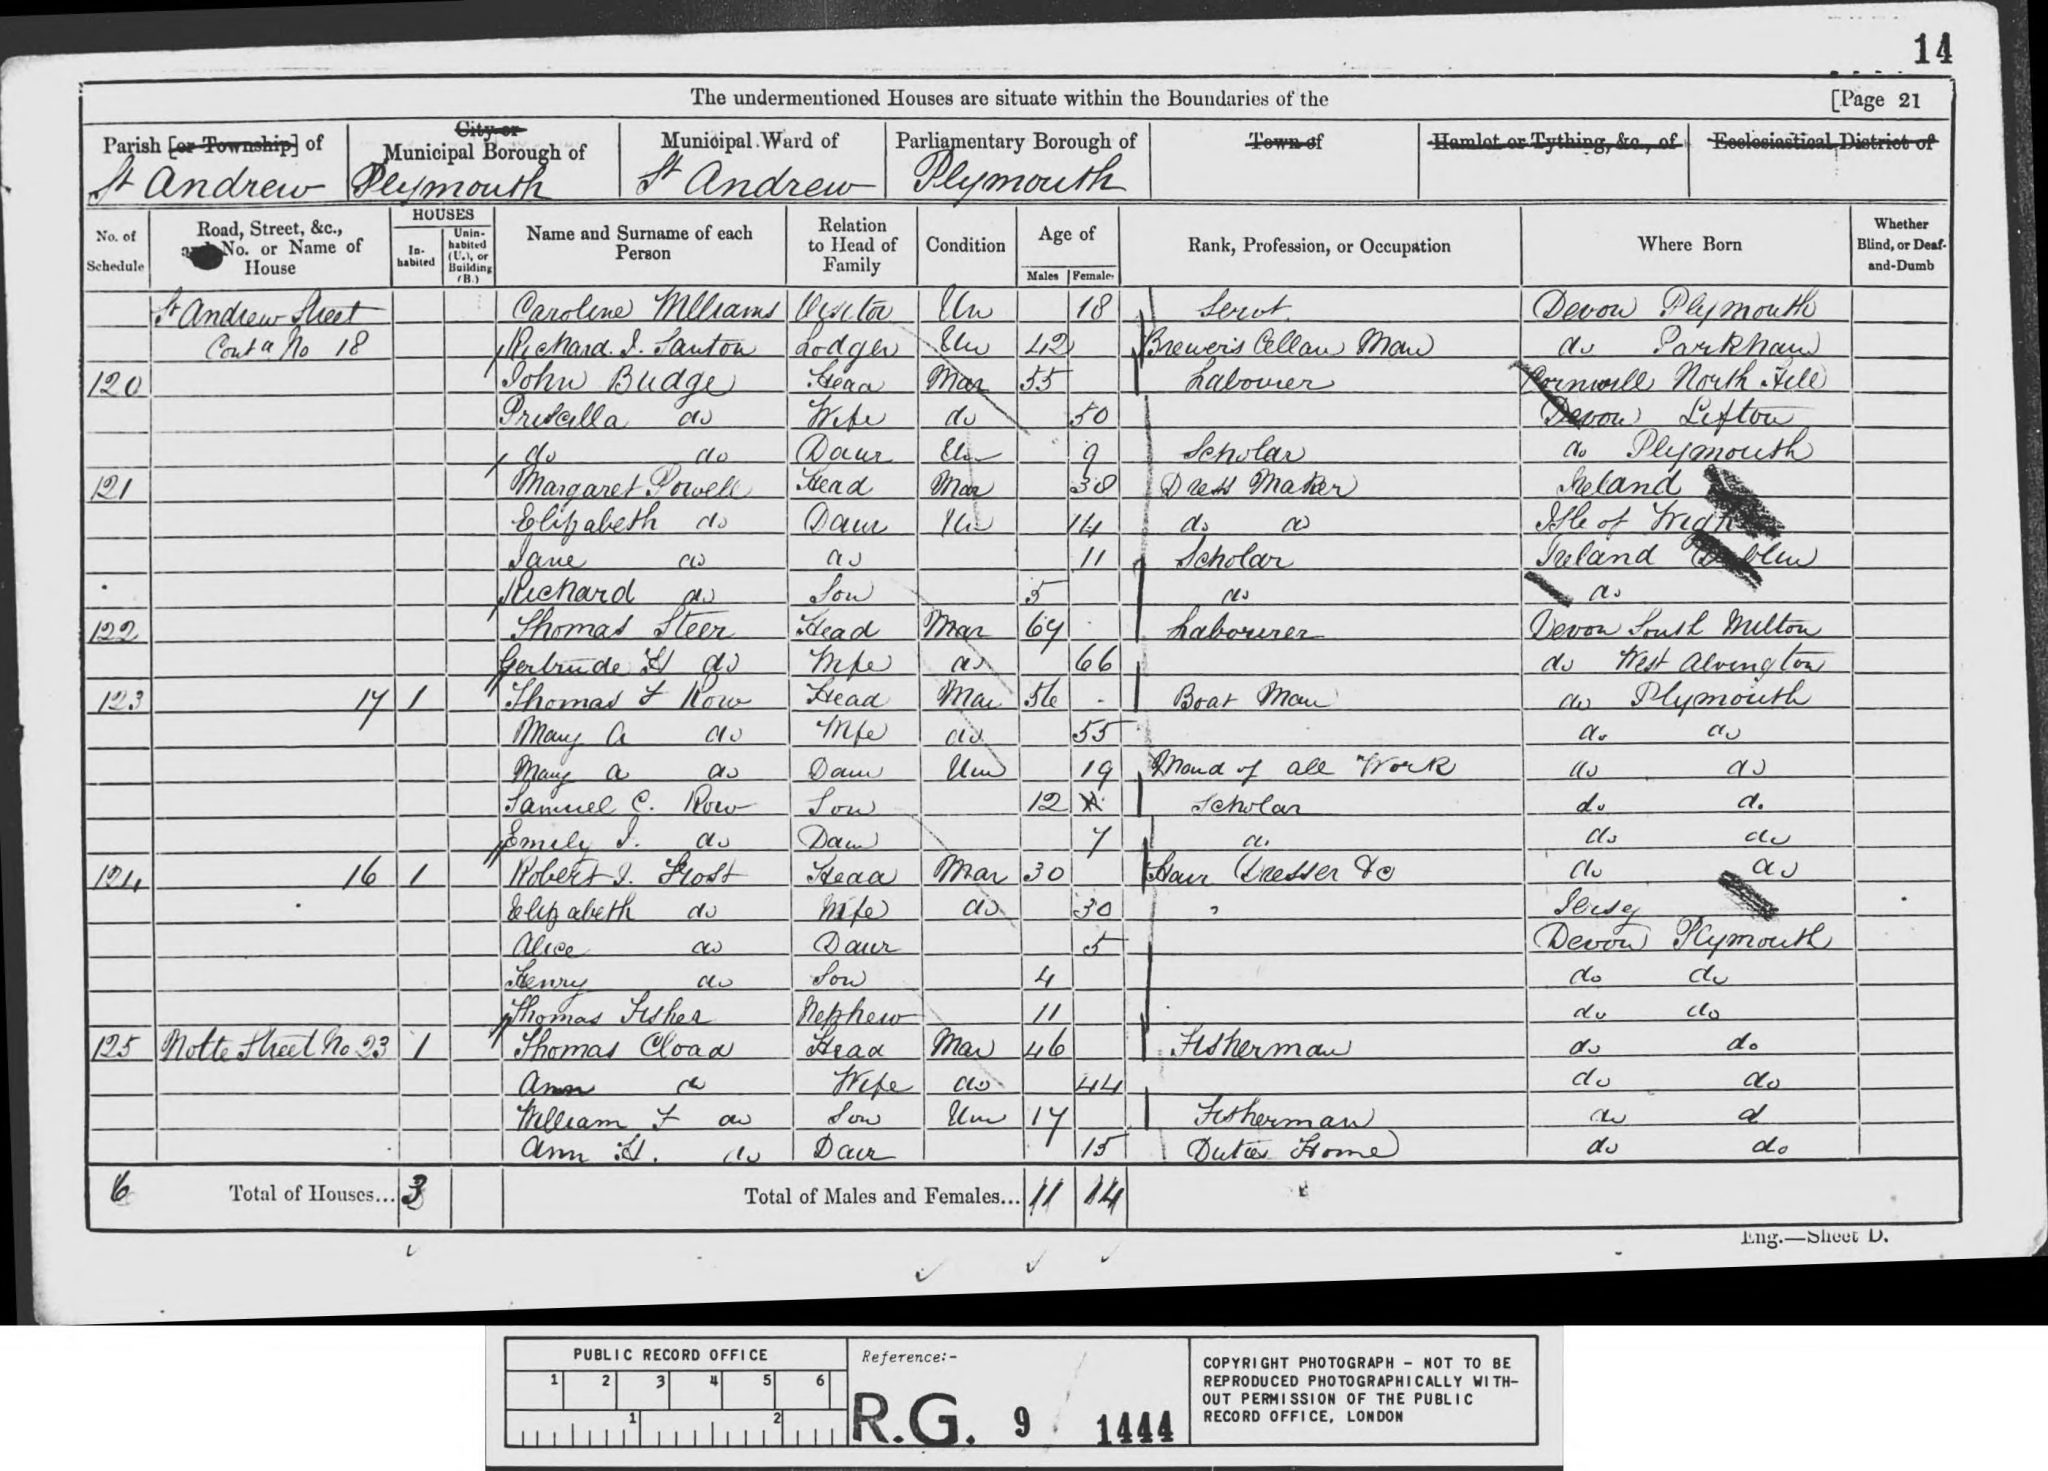 14
The undermentioned Houses are situate within the Boundaries of the [Page 21
Parish [or Township] of City or Municipal Borough of Municipal Ward of Parliamentary Borough of Town of Hamlet or Tything, &c., of Ecclesiastical District of
St Andrew Plymouth St Andrew Plymouth
No. of Schedule Road, Street, &c., and No. or Name of House HOUSES Inhabited Uninhabited (U.), or Building (B.) Name and Surname of each Person Relation to Head of Family Condition Age of Males Females Rank, Profession, or Occupation Where Born Whether Blind, or Deaf-and-Dumb
St Andrew Street Caroline Williams Visitor Un 18 Servt. Devon Plymouth
Contd No 18 Richard. J. Santon Lodger Un 42 Brewers Cellar Man do Parkham
120 John Budge Head Mar 55 Labourer Cornwall North Hill
Priscilla do Wife do 50 Devon Lifton
do do Daur Un 9 Scholar do Plymouth
121 Margaret Powell Head Mar 38 Dress Maker Ireland
Elizabeth do Daur Un 14 do do Isle of
Jane do do 11 Scholar Ireland Dublin
Richard do Son 5 do do
122 Thomas Steer Head Mar 67 Labourer Devon South Milton
Gertrude H do Wife do 66 do West Alvington
123 17 1 Thomas F Row Head Mar 56 Boat Man do Plymouth
Mary A do Wife do 55 do do
Mary A do Daur Un 19 Maid of all Work do do
Samuel C. Row Son 12 Scholar do do
Emily J. do Daur 7 do do do
124 16 1 Robert J. Frost Head Mar 30 Hair Dresser &c do do
Elizabeth do Wife do 30 Jersey
Alice do Daur 5 Devon Plymouth
Henry do Son 4 do do
Thomas Fisher Nephew 11 do do
125 Notte Street No 23 1 Thomas Cload Head Mar 46 Fisherman do do
Ann do Wife do 44 do do
William F do Son Un 17 Fisherman do d
Ann H. do Daur 15 Duties Home do do
6 Total of Houses... 3 Total of Males and Females... 11 14
Eng.—Sheet D.
PUBLIC RECORD OFFICE
1 2 3 4 5 6
1 2
Reference:-
R.G. 9 1444
COPYRIGHT PHOTOGRAPH - NOT TO BE
REPRODUCED PHOTOGRAPHICALLY WITH-
OUT PERMISSION OF THE PUBLIC
RECORD OFFICE, LONDON